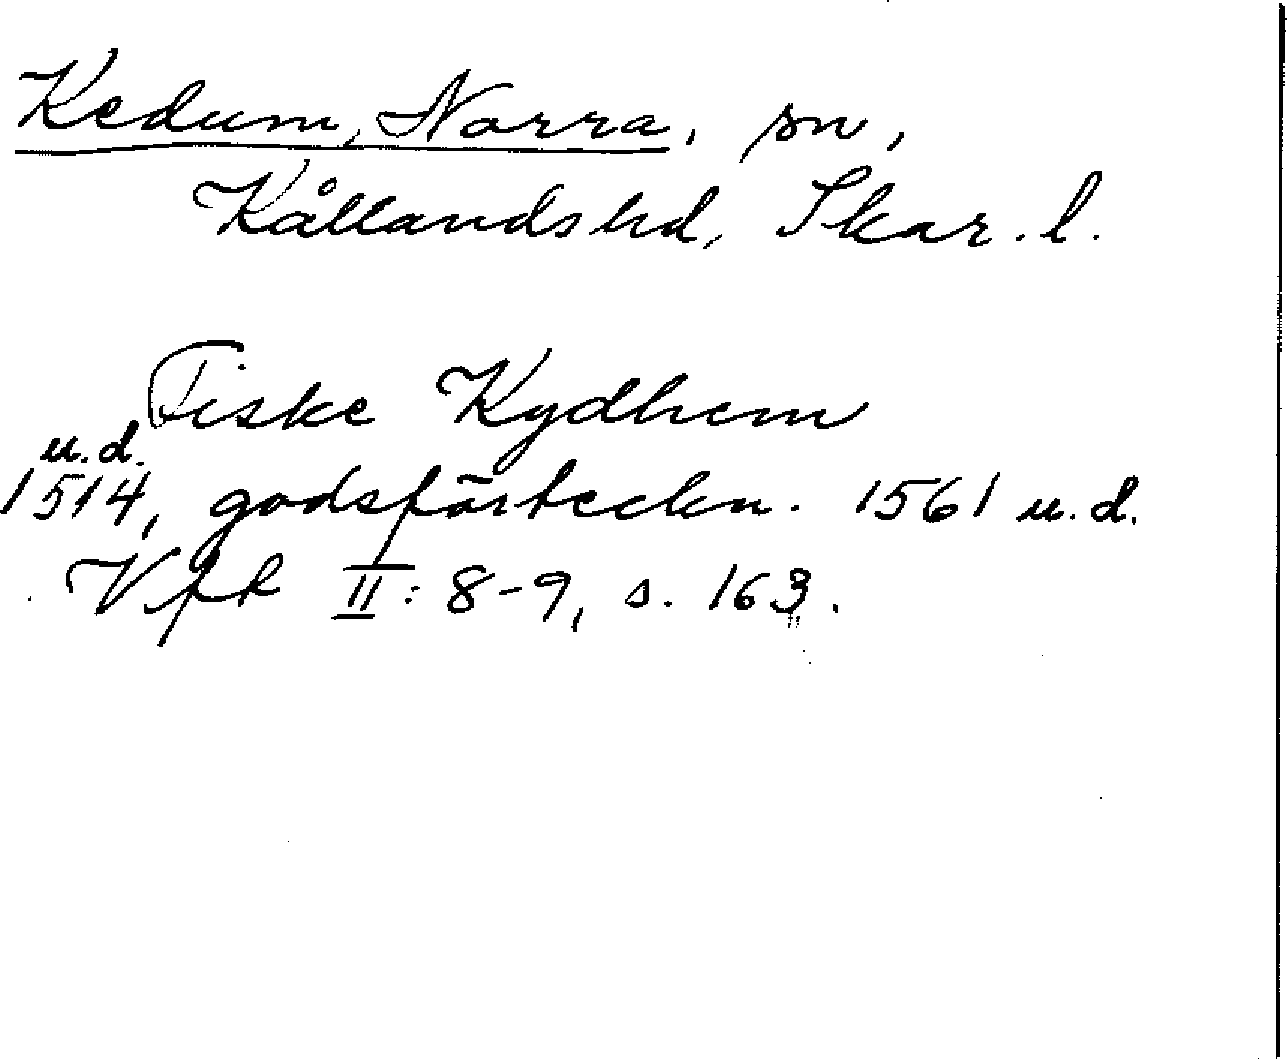 Kedum, Norra, sn,
Kållands hd, Skar. l.
Fiske Kydhem
u.d.
1514, godsförteckn. 1561 u.d.
VfR II: 8-9, s. 163.